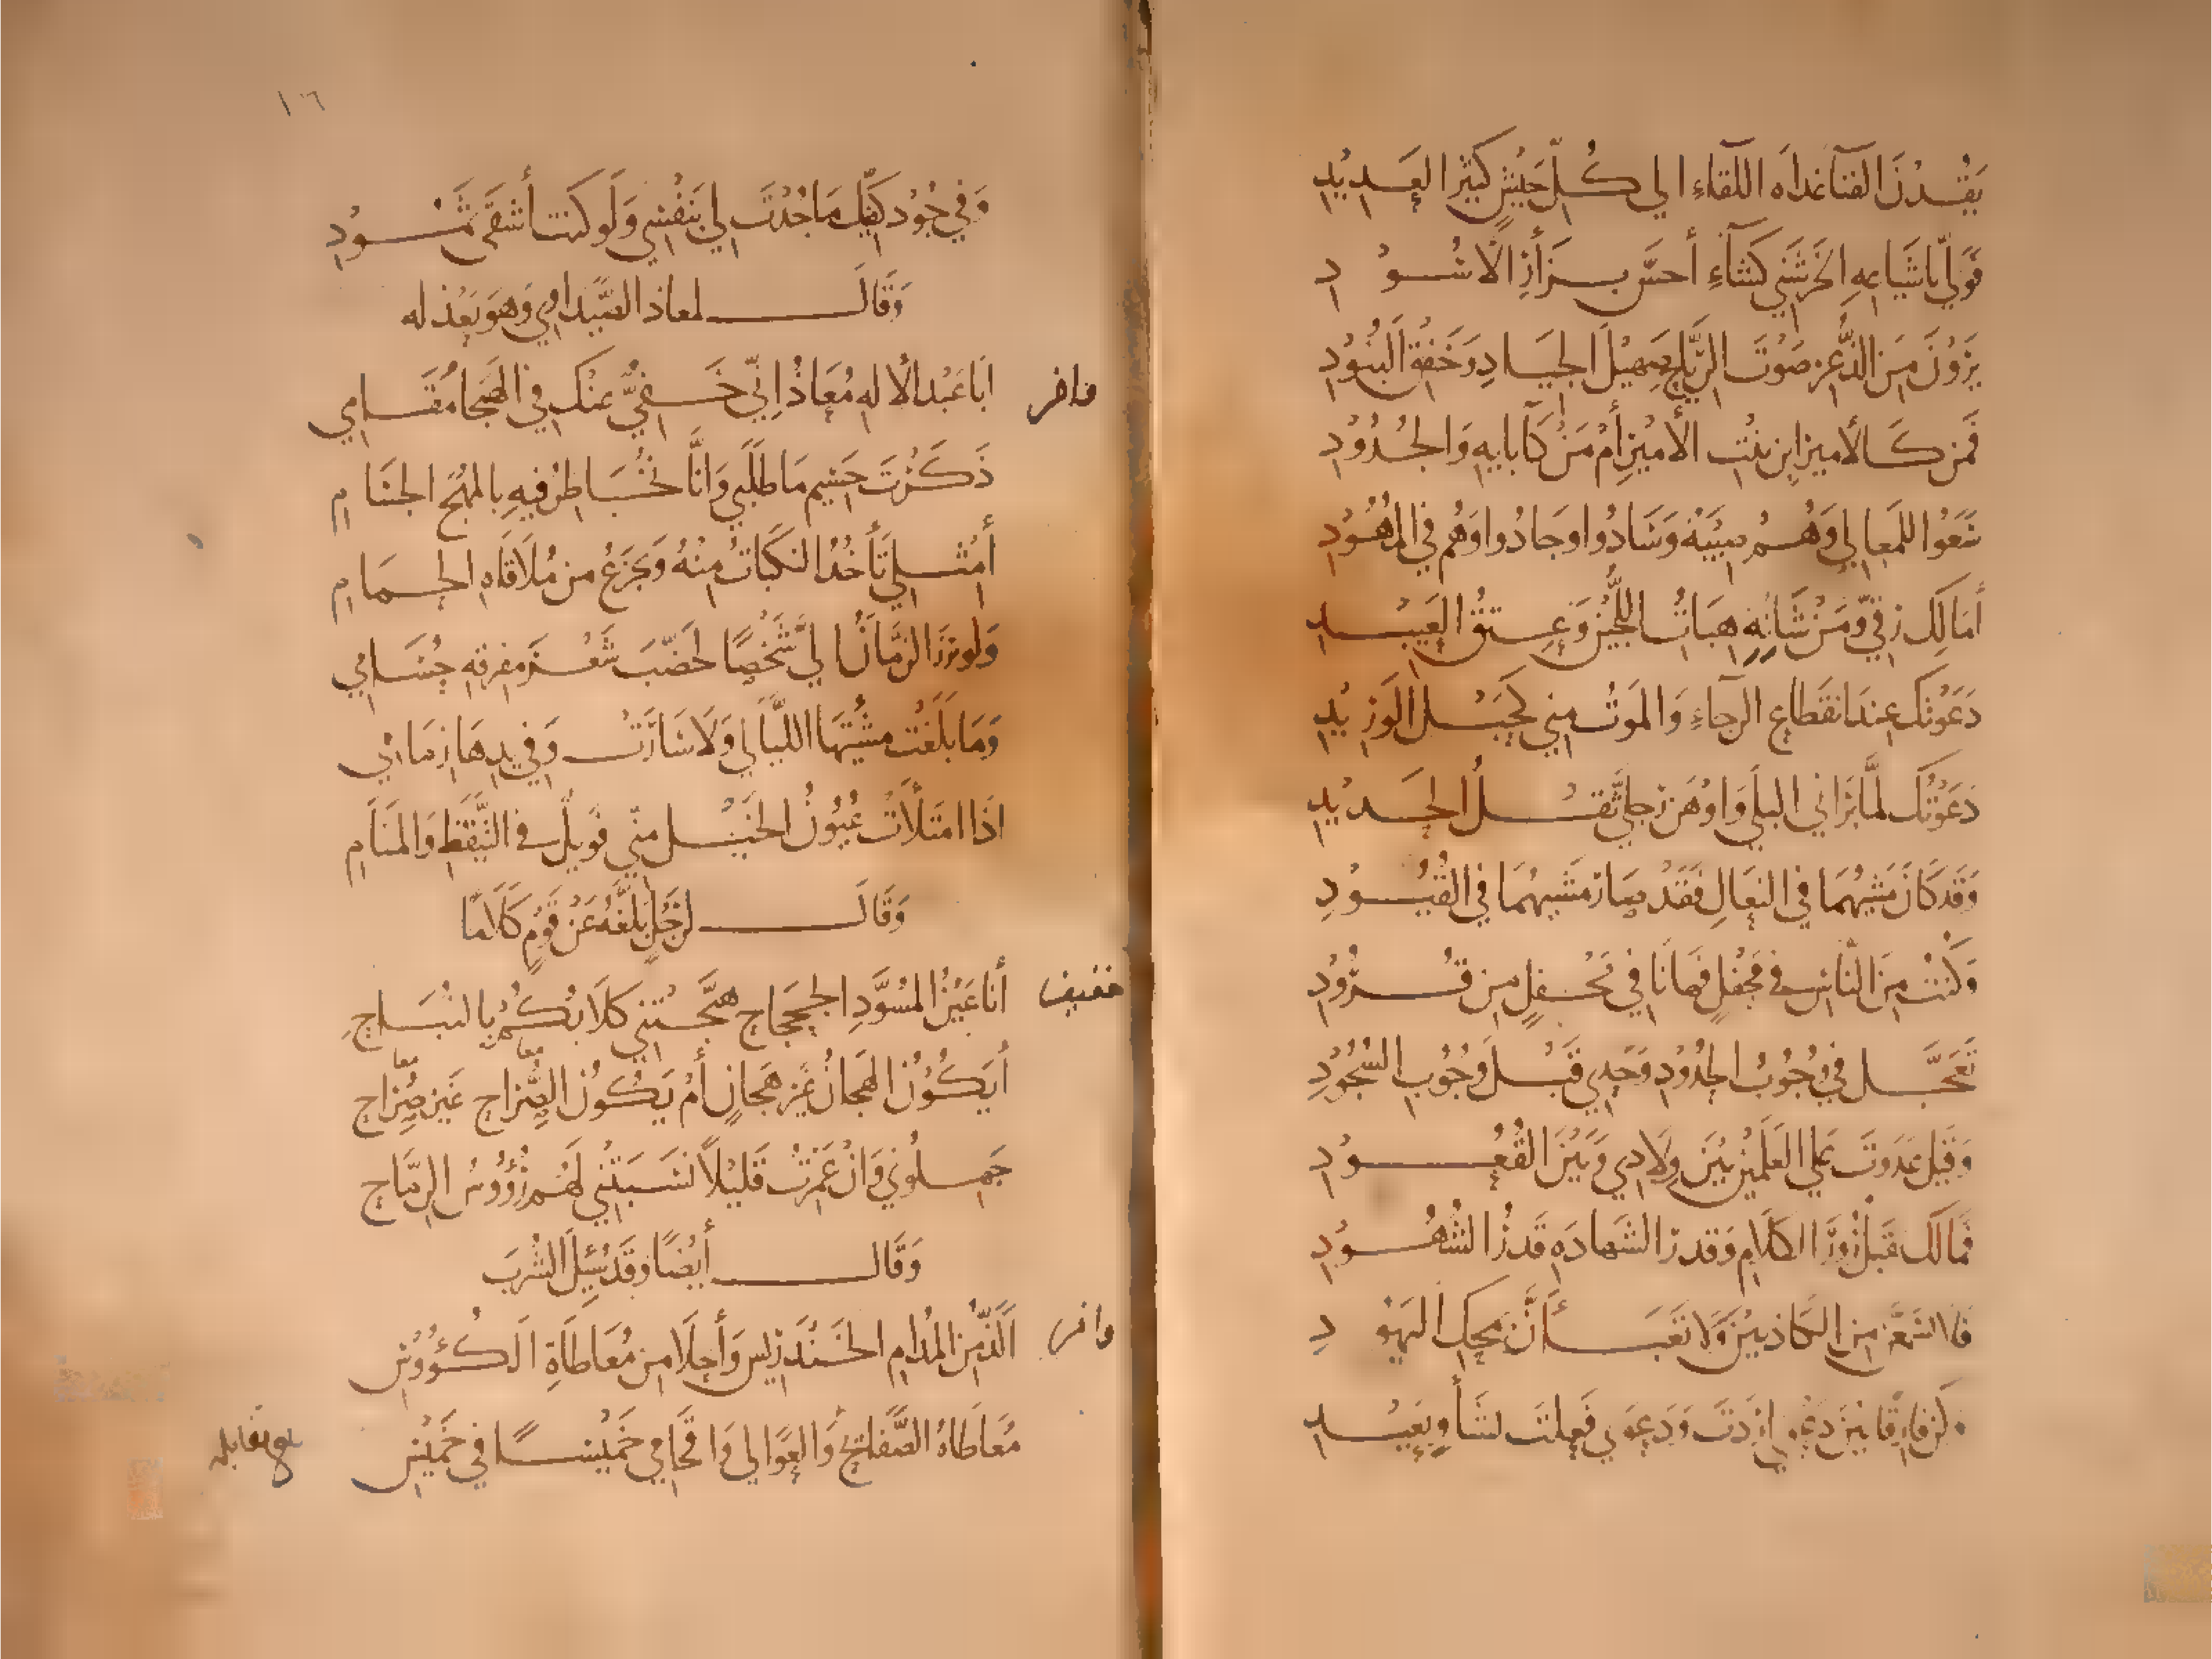 يَقُدْنَ الفَنَآ غداَه اللّقَاءِ الي كُلّ جَيْشٍ كَثيْرِ العَدِيْدِ
فَوَلّي باَشيَاعِهِ الخَرْشَنيّ كَشَآءٍ أحسَّ بِزَأرِ الاُسُوْدِ
يَرَوْنَ مِنَ الذُّعرِ صَوْتَ الرِّيَاحِ صَهِيْلَ الجِيَادِ وَخَفْقَ البُنُوْدِ
فَمَن كَالأميرِ ابنِ بنْتِ الأميْرِ أمْ مَنْ كَآبايِهِ وَالجُدُوْدِ
سَعَوْا للمَعالِي وَهُمْ صِبْيَةٌ وَسَادُوا وجَادُوا وَهُم في المُهُوْدِ
أمَالِكَ رِقّي وَمَنْ شَانُهُ هِبَاتُ اللُّجَيْنِ وَعِتقُ العَبيْدِ
دَعَوْتُكَ عِندَ انقَطاعِ الرجآءِ وَالمَوتُ مِني كَحَبْلِ الوَرِيْدِ
دَعَوْتُكَ لمَّا بَرَاني البلَي وَاوْهَنَ رِجليَّ ثقْلُ الحَدِيْدِ
وَقَد كَانَ مَشيُهُمَا في النِعَالِ فَقَدْ صَارَ مَشيُهُمَا في القُيُوْدِ
وَكنتُ مِنَ النّاسِ في مَحْفِلٍ فَهَا نَا في مَحْفِلٍ مِن قُرُوْدِ
تَعَجَّلَ فيّ وُجُوْبُ الحُدُوْدِ وَحَدِّي قَبْلَ وُجُوْبِ السُّجُوْدِ
وَقيْلَ عَدَوتَ عَلي العَلَمِيْنَ بيْنَ وِلاَدِي وَبَيْنَ القُعُوْدِ
فمَا لَكَ تقبَلُ زُوْرَ الكلاَمِ وَقَدرُ الشهَادَهِ قَدرُ الشُّهُوْدِ
فلا تسْمَعَنَّ مِنَ الكاذبيْنَ وَلاَ تَعبَأَنَّ بِمحكِ اليَهوْدِ
وكن فارِقًا بيْنَ دَعْوَي أرَدتَ وَدَعِوَي فَعلتَ بشَأوٍ بَعِيْدِ
١٦
وَفي جُوْدِ كَفَّيك مَا جُدْتَ لي بنَفْسِي وَلَو كنت أشقَي ثَمُوْدِ
وَقَالَ لمعاذ الصَّيداوي وَهوَ يَعْذله
وافر
اَبَا عَبْدِ الاِلهِ مُعَاذُ اِنّي خَفِيٌّ عَنْكَ في الهَيجا مُقَامِي
ذَكَرْتَ جَسِيمَ مَا طَلَبِي وَانَّا نُخَاطِرُ فيهِ بِالمُهَجِ الجِسَامِ
أمِثْلِي تَأخُذُ النكَبَاتُ مِنْهُ وَيَجزَعُ مِن مُلاَقَاهِ الحِمَامِ
وَلو بَرَزَ الزَّمَانُ الي شَخْصًا لَخَضّبَ شَعْرَ مفرِقهِ حُسَامِي
وَمَا بَلَغَت مشيّتَهَا اللّيَالي وَلاَ سَارَتْ وَفي يدِهَا زِمَامي
اذَا امتَلأَتْ عُيُوْنُ الخَيْلِ منّي فوَيْلٌ في التّيَقّظِ وَالمَنَامِ
وَقَالَ لرَجُلٍ بَلَغَهُ عَنْ قَوْمٍ كَلاَمًا
خفيف
أنا عَيْنُ المُسَوَّدِ الجحجَاحِ هيَّجَتْنِي كِلاَبُكُمْ بِالنُبَاحِ
أيَكُوْنُ الهِجَانُ غَيْرَ هِجَانٍ أمْ يَكُوْنُ الصُّرَاح غَيرَ صُرَاحِ
جَهِلُوْنِي وَانْ عَمَرْتُ قَليْلاً نَسَبَتْنِي لَهُم رُؤُوْسُ الرِّمَاحِ
وَقَالَ أيْضًا وَقَد سُئِلَ الشُرْبَ
وافر
اَلَذُّ مِنَ المُدَامِ الخَنْدَرِيْسِ وَأحلاَ مِن مُعَاطَاةِ الكُئُوْسِ
مُعَاطَاهُ الصَّفَايحِ وَالعَوَالي وَاقحَامِي خَمِيْسًا في خَمِيْسِ
بلغ مقابله